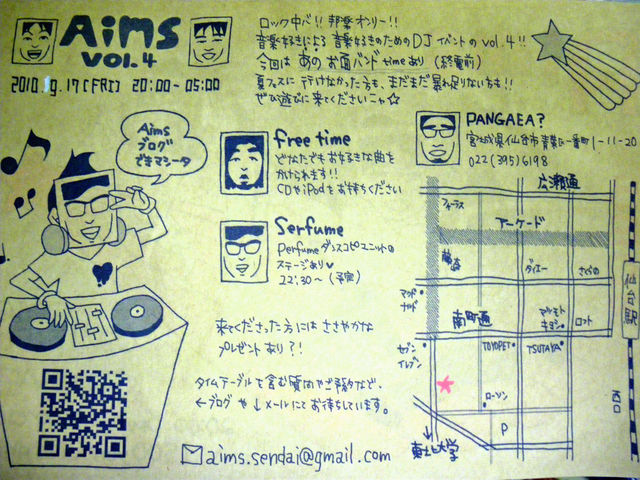 Aims
VOL.4
2010.9.17[FRI] 20:00-05:00
ロック中心!! 邦楽オンリー!!
音楽好きによる音楽好きのためのDJイベントのvol.4!!
今回はあのお面バンドtimeあり(終電前)
夏フェスに行けなかった方も、まだまだ暴れ足りない方も!!
ぜひ遊びに来てくださいニャ☆
Aims
ブログ
できマシータ
free time
どなたでもお好きな曲を
かけられます!!
CDやiPodをお持ちください
Serfume
Perfumeダンスコピーユニットの
ステージあり
22:30〜(予定)
PANGAEA?
宮城県仙台市青葉区一番町1-11-20
022(395)6198
広瀬通
フォーラス
アーケード
藤崎
ダイエー
さくらの
仙台駅
マクド
ナルド
南町通
マツモト
キヨシ
ロフト
セブン
イレブン
TOYOPET
TSUTAYA
ローソン
P
東北大学
来てくださった方にはささやかな
プレゼントあり?!
タイムテーブルを含む質問やご予約など、
←ブログや↓メールにてお待ちしています。
aims.sendai@gmail.com